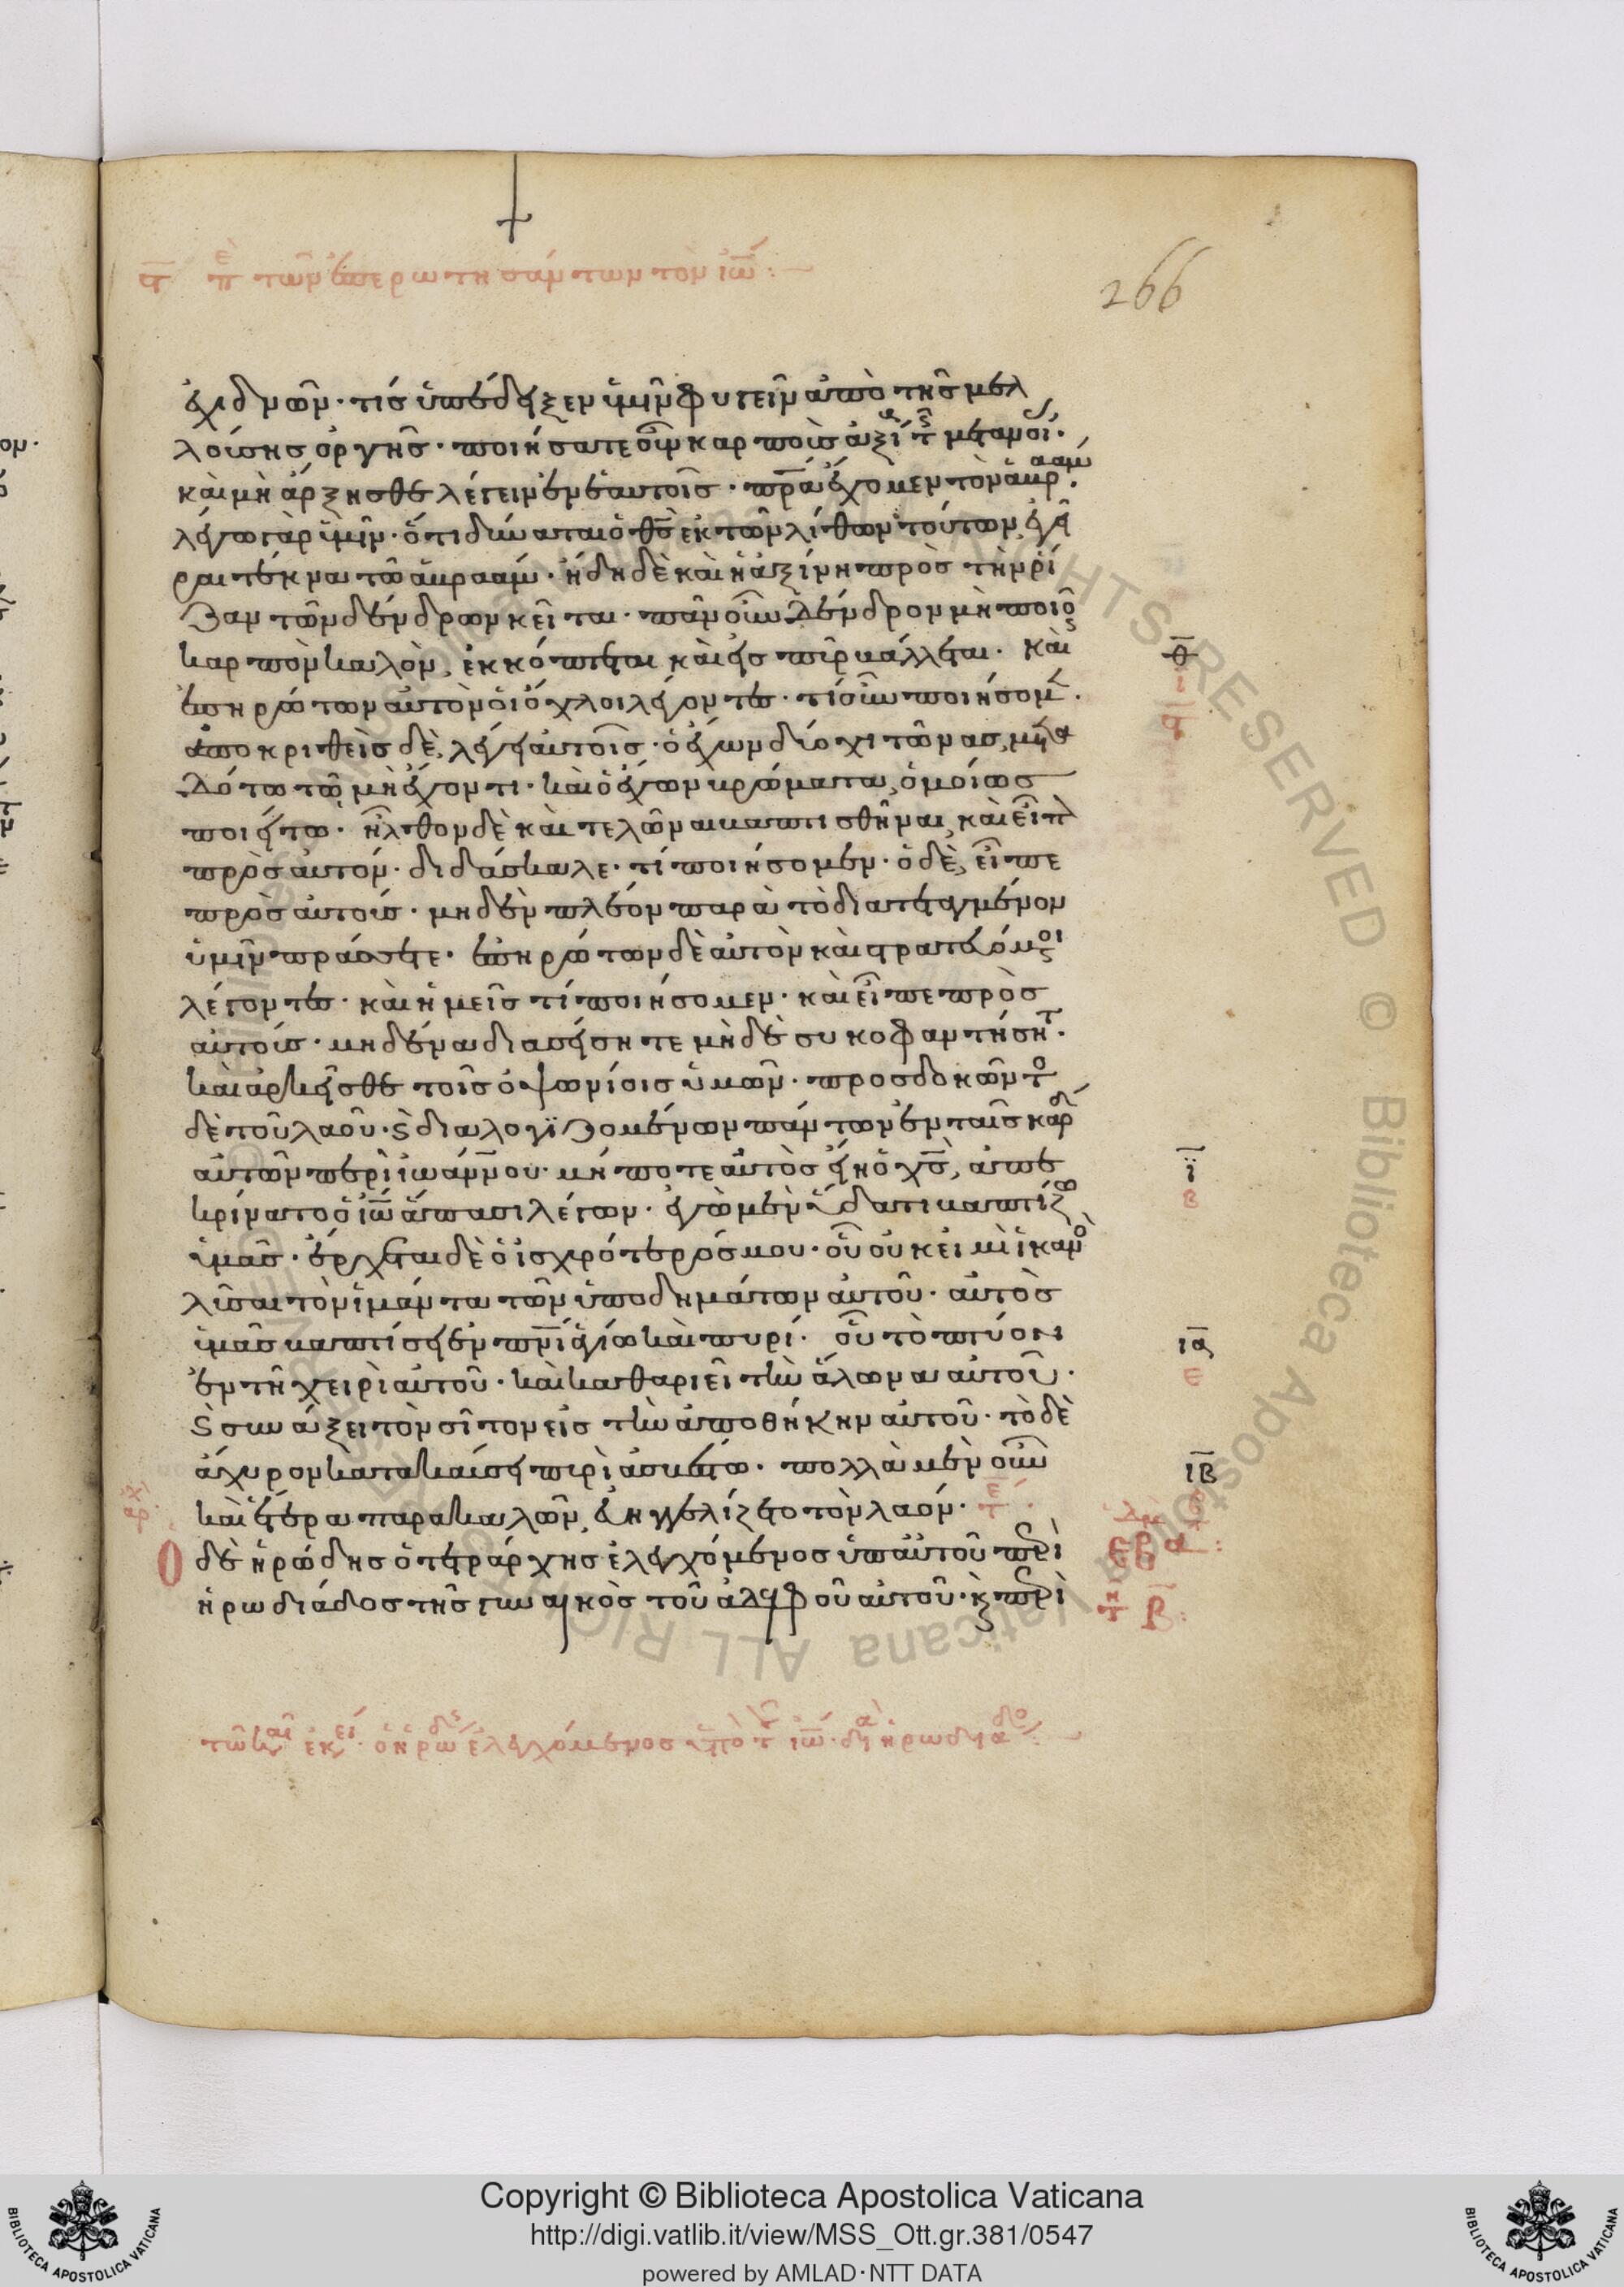 π τῶν ἐπερωτησάντων τὸν ἰω̅ :
266
ἐχιδνῶν · τίς ὑπέδειξεν ὑμῖν φυγεῖν ἀπὸ τῆς μελ
λούσης ὀργῆς · ποιήσατε οὖν καρποὺς ἀξί τ μετανοί ·
καὶ μὴ ἄρξησθε λέγειν ἐν ἑαυτοῖς · πρα ἔχομεν τὸν ἀβρααμ ·
λέγω γὰρ ὑμῖν · ὅτι δύναται ὁ θς ἐκ τῶν λίθων τούτων ἐγεῖ
ραι τέκνα τῶ ἀβρααμ · ἤδη δὲ καὶ ἡ ἀξίνη πρὸς τὴν ῥί
ζαν τῶν δένδρων κεῖται · πᾶν οὖν δένδρον μὴ ποιοῦ
καρπὸν καλὸν, ἐκκόπτεται καὶ εἰς πῦρ βάλλεται · καὶ
ἐπηρώτων αὐτὸν οἱ ὄχλοι λέγοντες · τί οὖν ποιήσομεν ·
ἀποκριθεὶς δὲ, λέγει αὐτοῖς · ὁ ἔχων δύο χιτῶνας, μετα
δότω τῶ μὴ ἔχοντι · καὶ ὁ ἔχων βρώματα, ὁμοίως
ποιείτω · ἦλθον δὲ καὶ τελῶναι βαπτισθῆναι, καὶ εἶπ
πρὸς αὐτόν · διδάσκαλε · τί ποιήσομεν · ὁ δὲ, εἶπε
πρὸς αὐτούς · μηδὲν πλέον παρὰ τὸ διατεταγμένον
ὑμῖν πράσσετε · ἐπηρώτων δὲ αὐτὸν καὶ στρατευόμενοι
λέγοντες · καὶ ἡμεῖς τί ποιήσομεν · καὶ εἶπε πρὸς
αὐτούς · μηδένα διασείσητε μὴδὲ συκοφαντήσητ ·
καὶ ἀρκεῖσθε τοῖς ὀψωνίοις ὑμῶν · προσδοκῶντο
δὲ τοῦ λαοῦ · ϗ διαλογϊζομένων πάντων ἐν ταῖς καρδ
αὐτῶν περὶ ἰωάννου · μή ποτε αὐτὸς εἴη ὁ χς, ἀπε
κρίνατο ὁ ἰω̅ ἅπασι λέγων · ἐγὼ μὲν ὕδατι βαπτίζω
ὑμᾶς · ἔρχεται δὲ ὁ ἰσχυρότερός μου · οὗ οὐκ εἰμὶ ἱκανὸ
λῦσαι τὸν ἱμάντα τῶν ὑποδημάτων αὐτοῦ · αὐτὸς
ὑμᾶς βαπτίσει ἐν πνι ἁγίω καὶ πυρί · οὗ τὸ πτύον
ἐν τῆ χειρὶ αὐτοῦ · καὶ καθαριεῖ τὴν ἅλωνα αὐτοῦ ·
ϗ συνάξει τὸν σῖτον εἰς τὴν ἀποθήκην αὐτοῦ · τὸ δὲ
ἄχυρον κατακαύσει πυρὶ ἀσβέστω · πολλὰ μὲν οὖν
καὶ ἕτερα παρακαλῶν, εὐηγγελίζετο τὸν λαόν ·
Ὁ δὲ ἡρώδης ὁ τετράρχης ἐλεγχόμενος ὑπ αὐτοῦ περὶ
ἡρωδιάδος τῆς γυναικὸς τοῦ ἀδελφοῦ αὐτοῦ · ϗ περὶ
θ
ι
ια
ιβ
Copyright © Biblioteca Apostolica Vaticana
http://digi.vatlib.it/view/MSS_Ott.gr.381/0547
powered by AMLAD·NTT DATA
BIBLIOTECA APOSTOLICA VATICANA
BIBLIOTECA APOSTOLICA VATICANA